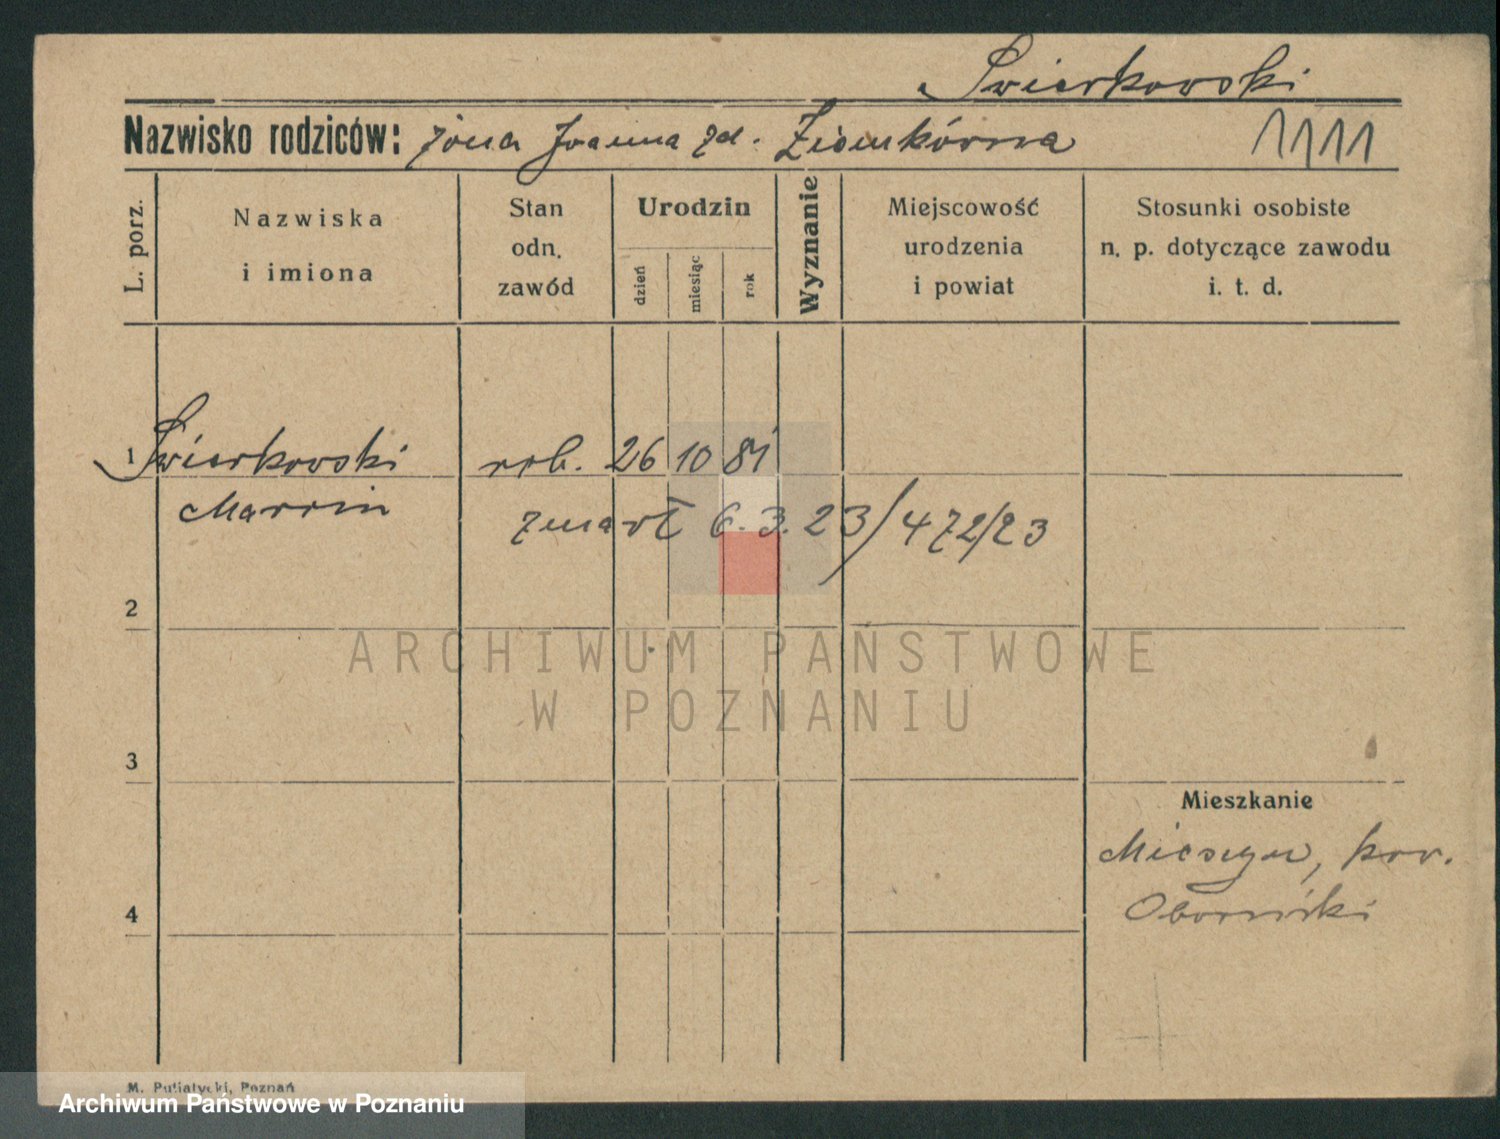 Świerkowski
Nazwisko rodziców: żona Joanna zd.
1111
L. porz.
Nazwiska
i imiona
Stan
odn.
zawód
Urodzin
dzień
miesiąc
rok
Wyznanie
Miejscowość
urodzenia
i powiat
Stosunki osobiste
n. p. dotyczące zawodu
i. t. d.
1 Świerkowski rob. 26 10 81
Marcin
zmarł 6.3.23/472/23
2
3
4
Mieszkanie
pow.
Oborniki
M. Putiatycki, Poznań
ARCHIWUM PAŃSTWOWE
W POZNANIU
Archiwum Państwowe w Poznaniu